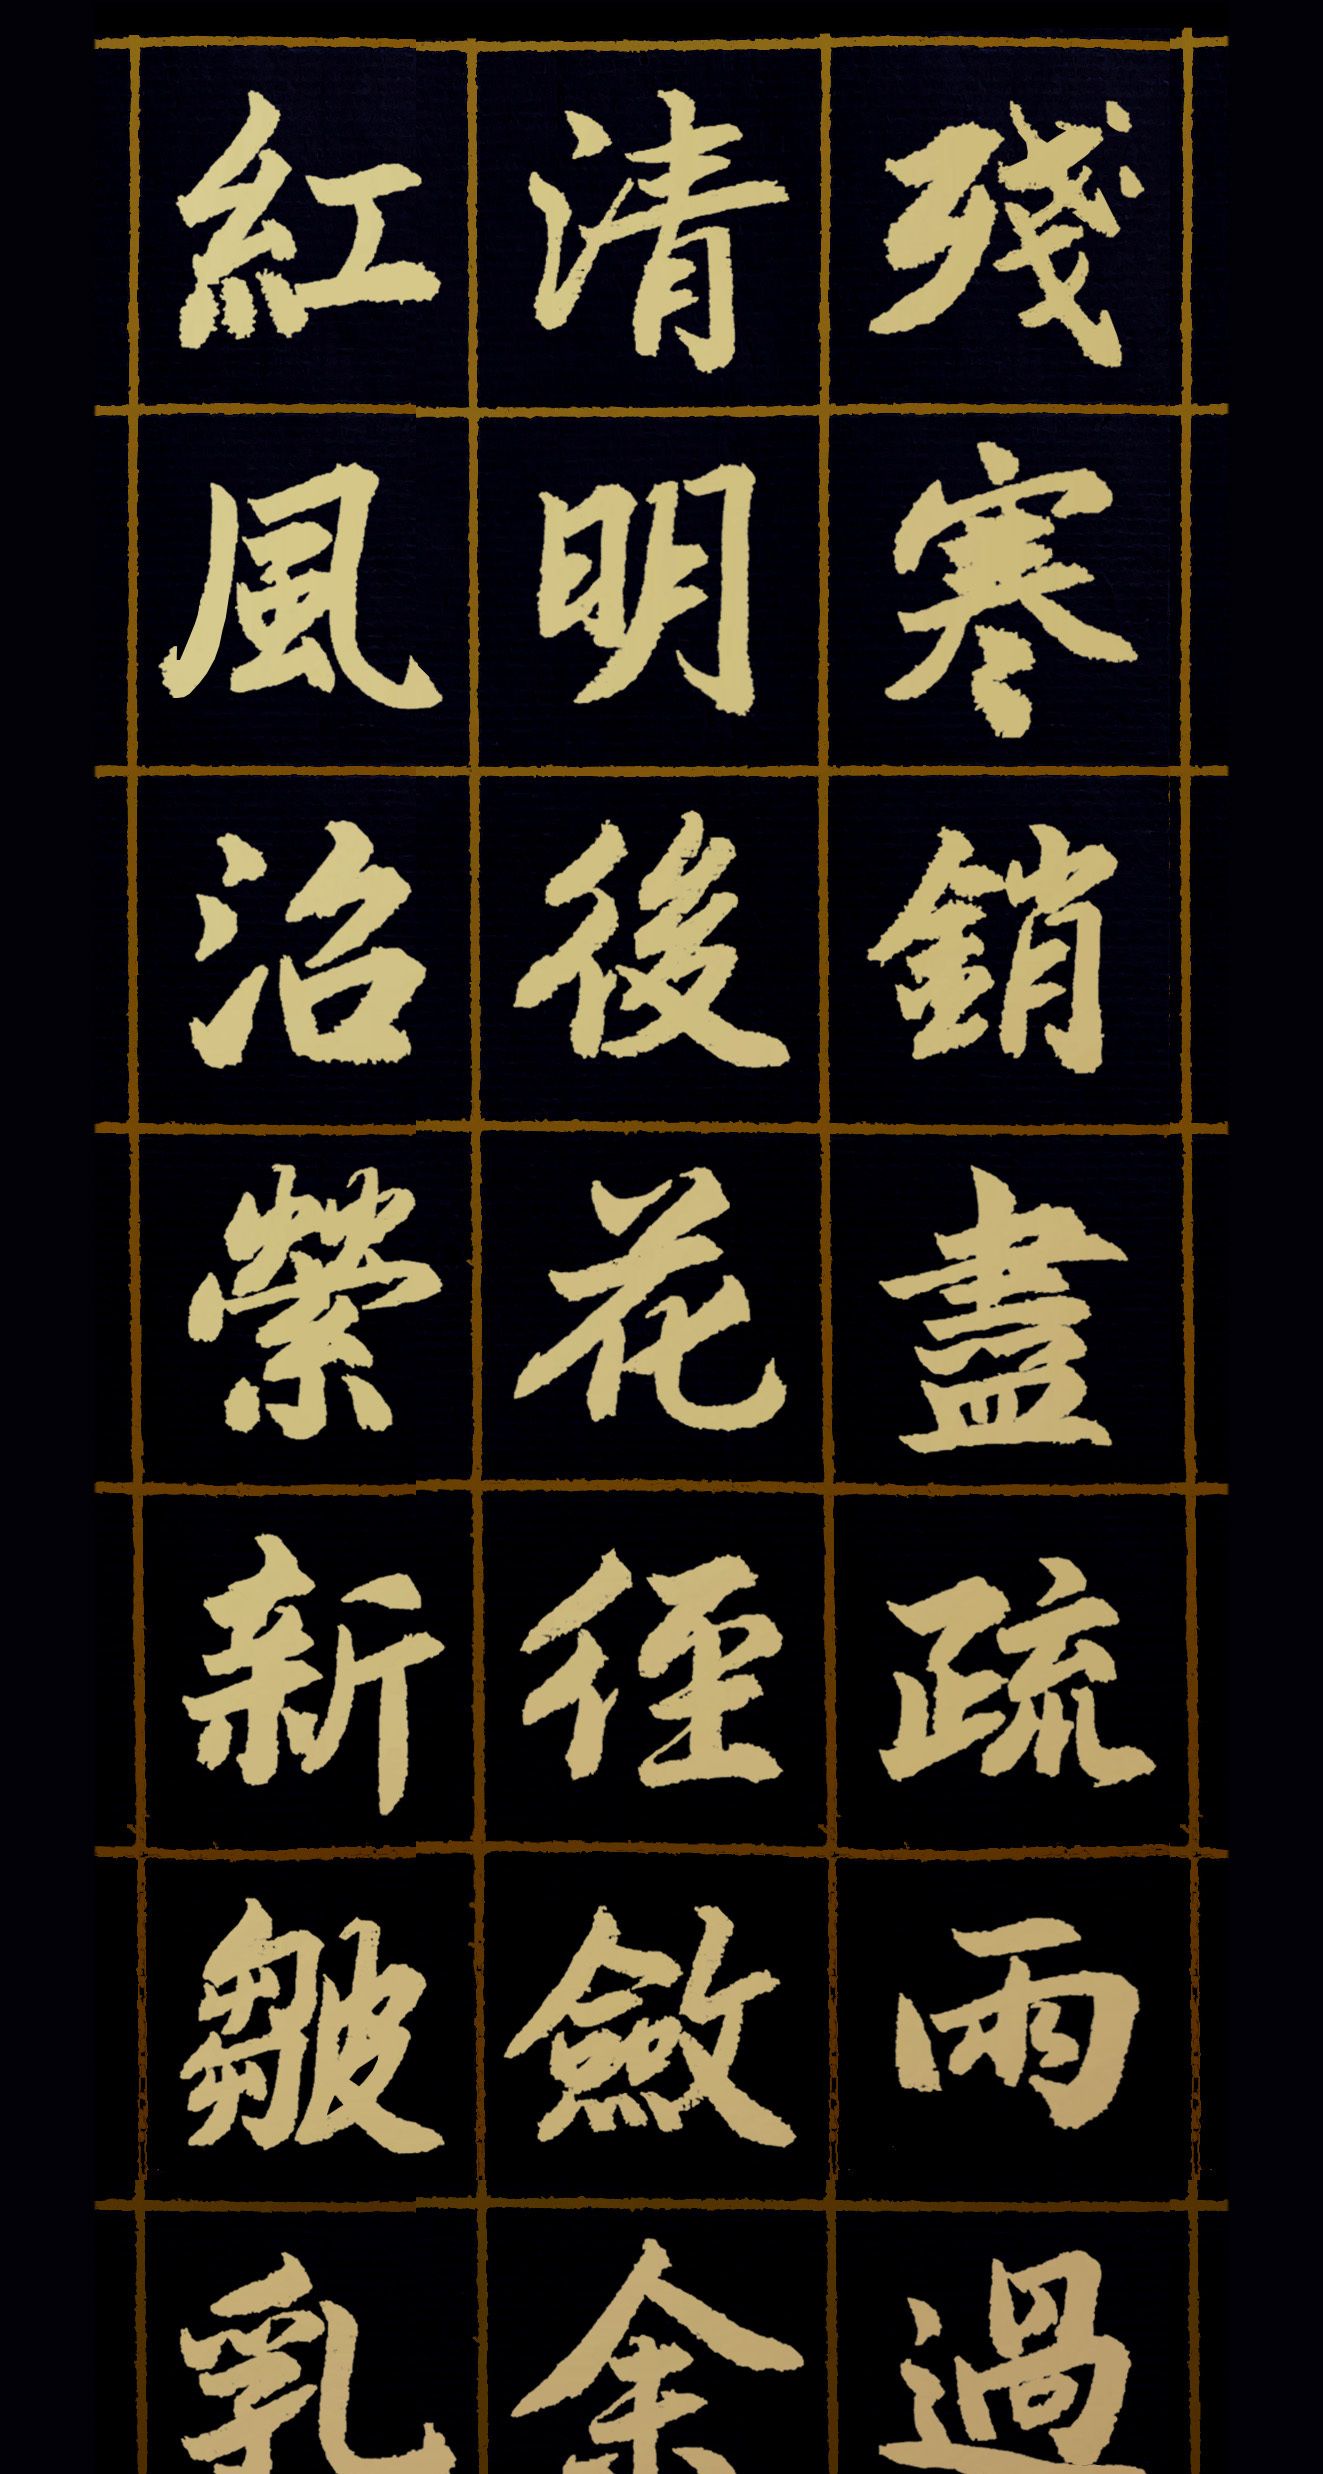 殘寒銷盡疏雨過
清明後花徑斂余
紅風沼縈新皺乳